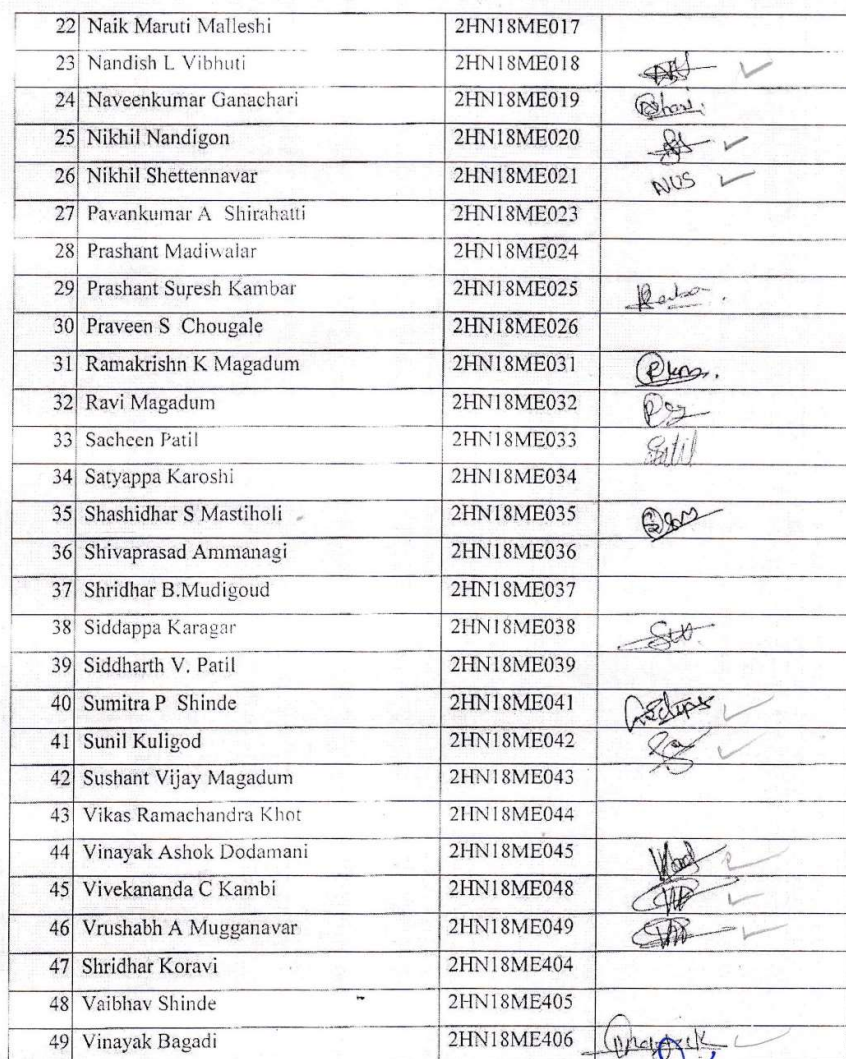 22 Naik Maruti Malleshi 2HN18ME017
23 Nandish L Vibhuti 2HN18ME018 ✓
24 Naveenkumar Ganachari 2HN18ME019
25 Nikhil Nandigon 2HN18ME020 ✓
26 Nikhil Shettennavar 2HN18ME021 NUS ✓
27 Pavankumar A Shirahatti 2HN18ME023
28 Prashant Madiwalar 2HN18ME024
29 Prashant Suresh Kambar 2HN18ME025
30 Praveen S Chougale 2HN18ME026
31 Ramakrishn K Magadum 2HN18ME031
32 Ravi Magadum 2HN18ME032
33 Sacheen Patil 2HN18ME033
34 Satyappa Karoshi 2HN18ME034
35 Shashidhar S Mastiholi 2HN18ME035
36 Shivaprasad Ammanagi 2HN18ME036
37 Shridhar B.Mudigoud 2HN18ME037
38 Siddappa Karagar 2HN18ME038
39 Siddharth V. Patil 2HN18ME039
40 Sumitra P Shinde 2HN18ME041 ✓
41 Sunil Kuligod 2HN18ME042 ✓
42 Sushant Vijay Magadum 2HN18ME043
43 Vikas Ramachandra Khot 2HN18ME044
44 Vinayak Ashok Dodamani 2HN18ME045 ✓
45 Vivekananda C Kambi 2HN18ME048 ✓
46 Vrushabh A Mugganavar 2HN18ME049 ✓
47 Shridhar Koravi 2HN18ME404
48 Vaibhav Shinde 2HN18ME405
49 Vinayak Bagadi 2HN18ME406 ✓